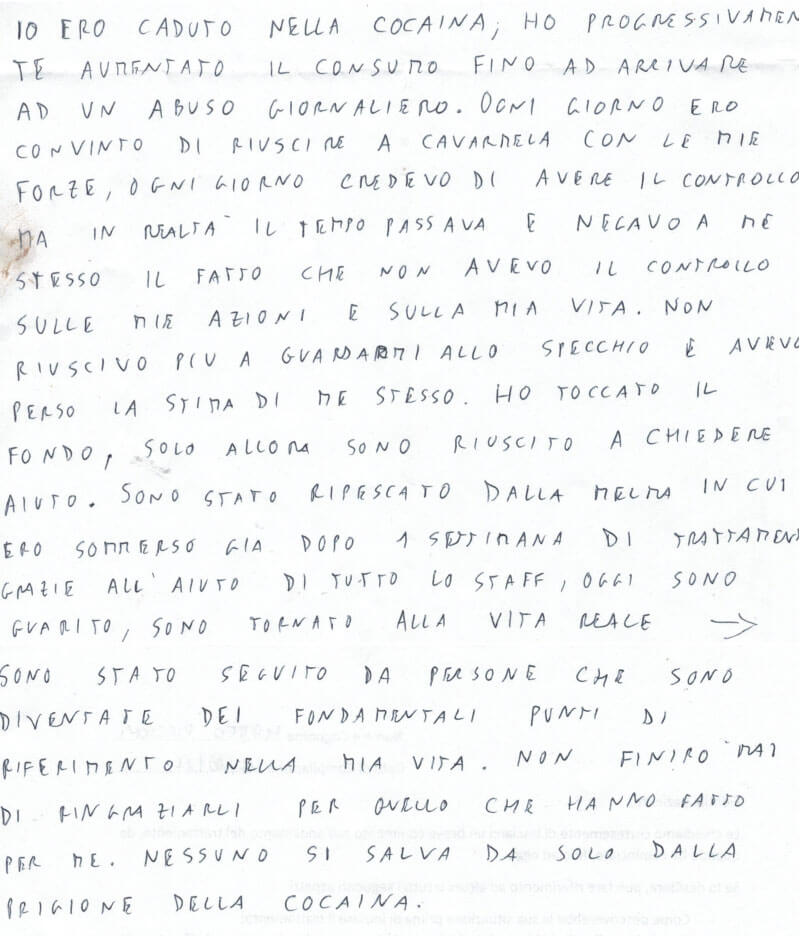 IO ERO CADUTO NELLA COCAINA, HO PROGRESSIVAMEN
TE AUMENTATO IL CONSUMO FINO AD ARRIVARE
AD UN ABUSO GIORNALIERO. OGNI GIORNO ERO
CONVINTO DI RIUSCIRE A CAVARMELA CON LE MIE
FORZE, OGNI GIORNO CREDEVO DI AVERE IL CONTROLLO
MA IN REALTA' IL TEMPO PASSAVA E NEGAVO A ME
STESSO IL FATTO CHE NON AVEVO IL CONTROLLO
SULLE MIE AZIONI E SULLA MIA VITA. NON
RIUSCIVO PIU A GUARDARMI ALLO SPECCHIO E AVEVO
PERSO LA STIMA DI ME STESSO. HO TOCCATO IL
FONDO, SOLO ALLORA SONO RIUSCITO A CHIEDERE
AIUTO. SONO STATO RIPESCATO DALLA MELMA IN CUI
ERO SOMMERSO GIA DOPO 1 SETTIMANA DI TRATTAMEN
GRAZIE ALL'AIUTO DI TUTTO LO STAFF, OGGI SONO
GUARITO, SONO TORNATO ALLA VITA REALE →
SONO STATO SEGUITO DA PERSONE CHE SONO
DIVENTATE DEI FONDAMENTALI PUNTI DI
RIFERIMENTO NELLA MIA VITA. NON FINIRO' MAI
DI RINGRAZIARLI PER QUELLO CHE HANNO FATTO
PER ME. NESSUNO SI SALVA DA SOLO DALLA
PRIGIONE DELLA COCAINA.